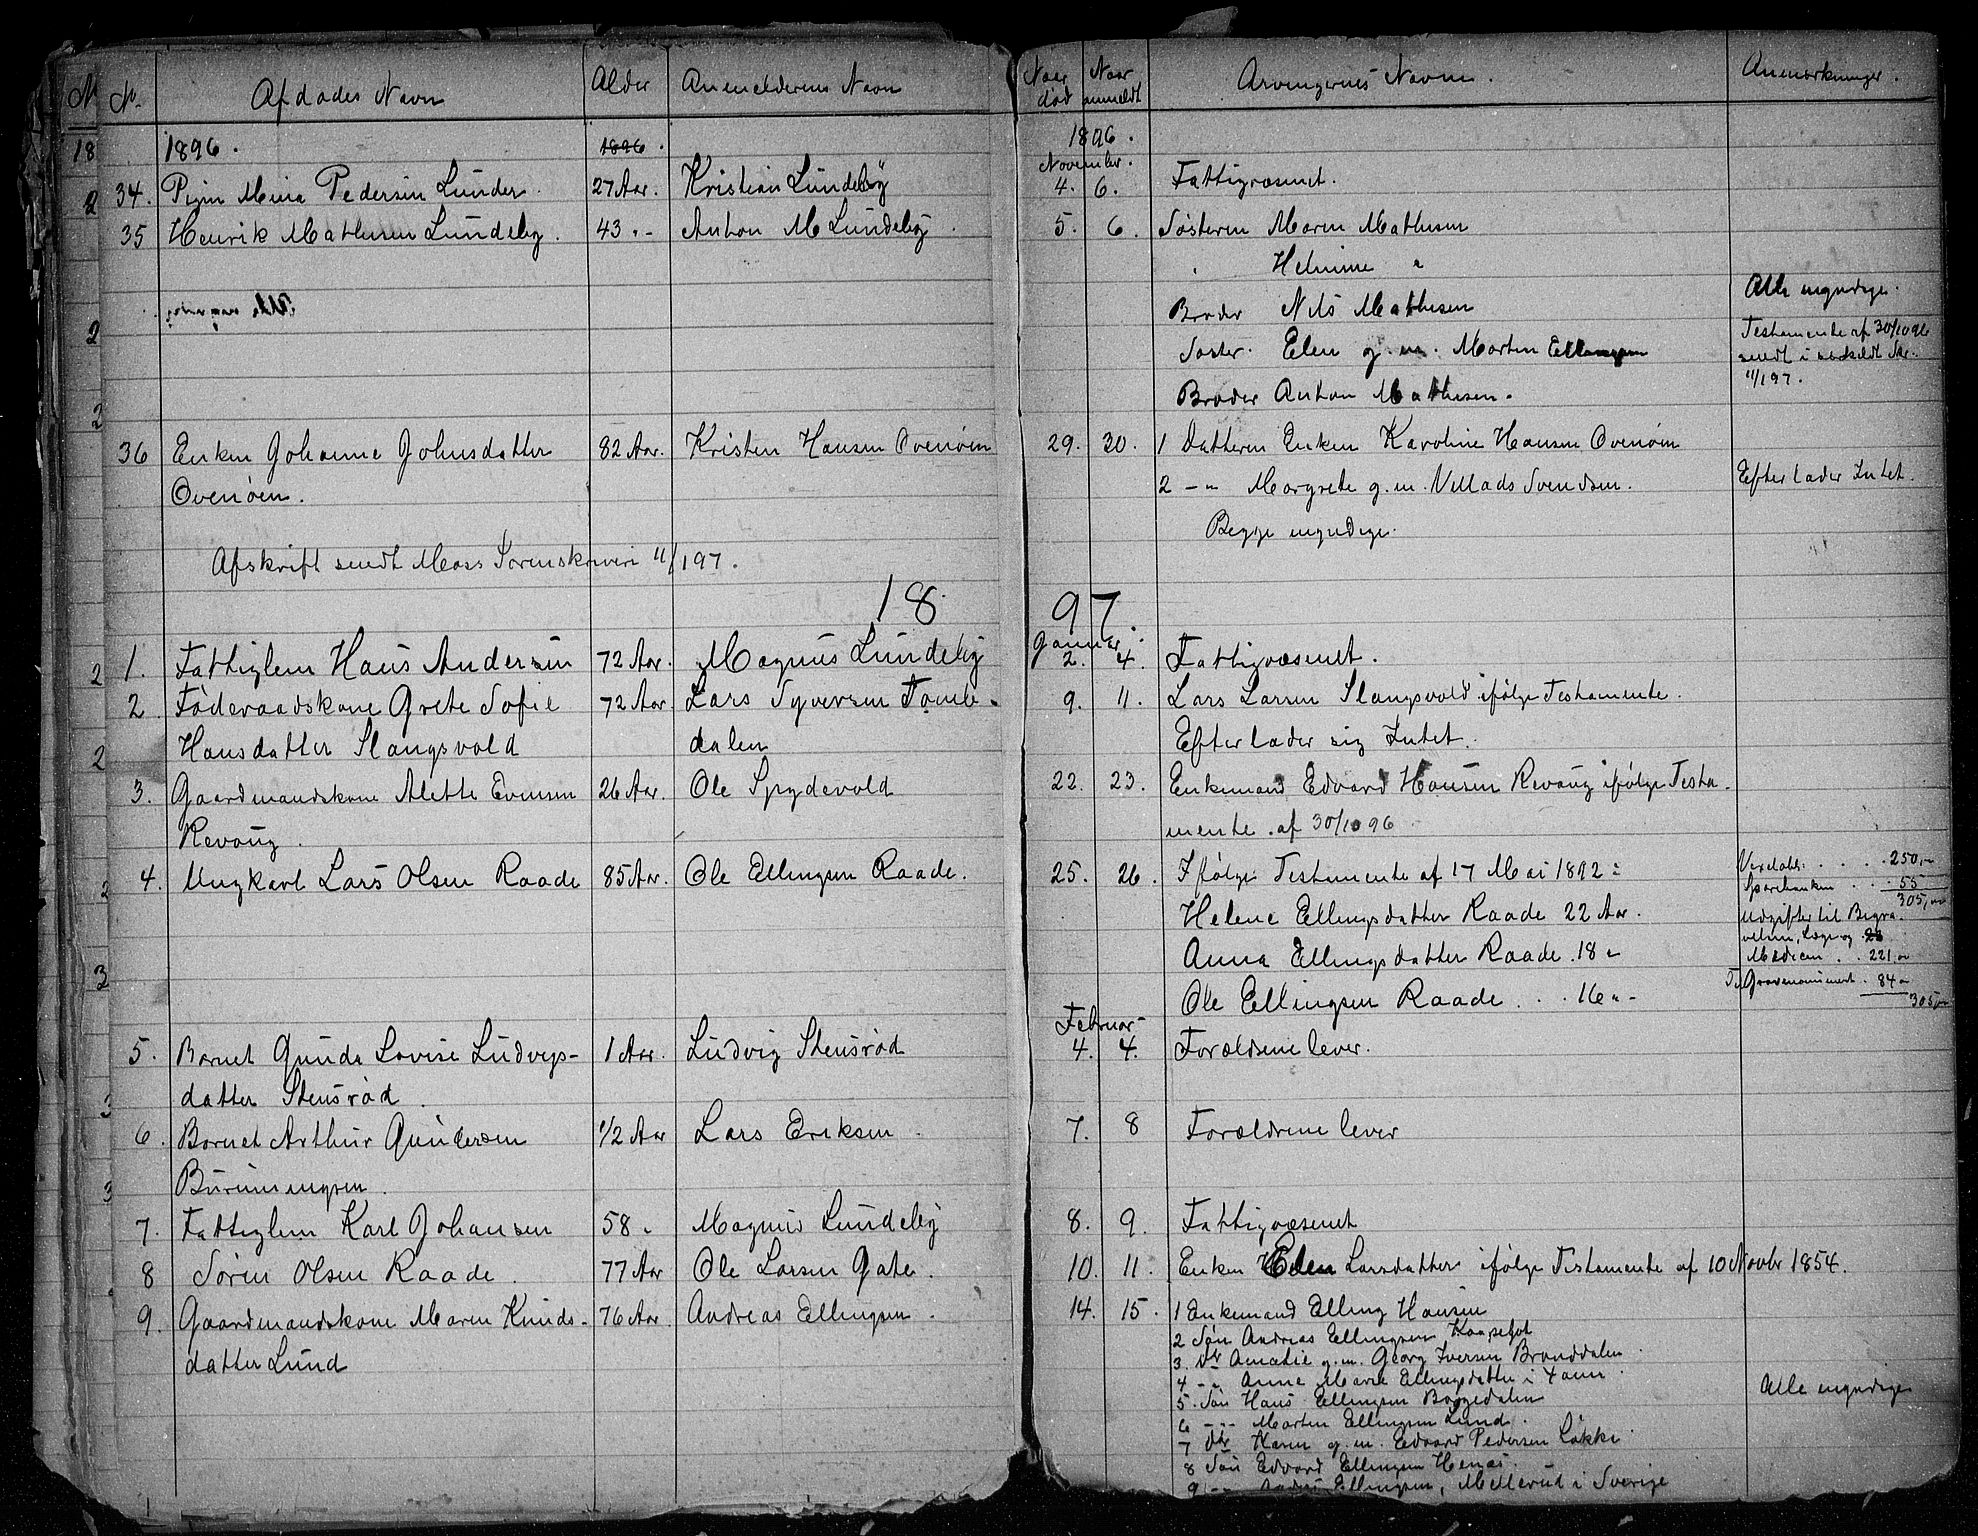 No. Afdødes Navn Alder Anmelderens Navn Naar død Naar anmeldt Arvingernes Navne. Anmærkninger.
1896. 1896. 1896.
November.
34. Mina Pedersen Lunder. 27 Aar. Kristian Lundeby 4. 6. Fattigvæsenet.
35 Henrik Mathisen Lundeby. 43 " - Anton M Lundeby. 5. 6. Søsteren Maren Mathisen
" Helmine "
Broder Nils Mathisen Alle myndige.
Søster. Elen g. m. Morten Ellingsen Testamente af 30/10 96
sendt i
Broder Anton Mathisen. 11/1 97.
36 Enken Johanne Johnsdatter 82 Aar. Kristen Hansen Ovenøen 29. 30. 1 Datteren Enken Karoline Hansen Ovenøen
Ovenøen. 2 - " Margrete g. m. Villads Svendsen. Efterlader Intet.
Begge myndige.
Afskrift sendt Moss Sorenskriveri 11/1 97.
18 97.
Januar.
1. Fattiglem Hans Andersen 72 Aar. Magnus Lundeby 2. 4. Fattigvæsenet.
2. Føderaadskone Grete Sofie 72 Aar. Lars Syversen Tombe- 9. 11. Lars Larsen Slangsvold ifølge Testamente.
Hansdatter Slangsvold dalen Efterlader sig Intet.
3. Gaardmandskone Alette Evensen 26 Aar. Ole Spydevold 22. 23. Enkemand Edvard Hansen Revaug ifølge Testa-
Revaug. mente af 30/10 96
4. Ungkarl Lars Olsen Raade 85 Aar. Ole Ellingsen Raade. 25. 26. Ifølge Testamente af 17 Mai 1892: . . . . 250,-
Sparebanken . . . 55
Helene Ellingsdatter Raade 22 Aar. 305,-
Udgifter til Begra-
velsen, Læge og
Anna Ellingsdatter Raade. 18 " Medicin . . 221,-
Ole Ellingsen Raade . . . 16 " - Til Gravmonument . 84,-
305,-
Februar
5. Barnet Gunda Lovise Ludvigs- 1 Aar. Ludvig Stensrød 4. 4. Forældrene lever.
datter Stensrød.
6. Barnet Arthur Gundersen 1/2 Aar Lars Eriksen. 7. 8 Forældrene lever
7. Fattiglem Karl Johansen 58 " Magnus Lundeby 8. 9. Fattigvæsenet
8 Søren Olsen Raade. 77 Aar Ole Larsen Gate. 10. 11. Enken Elen Larsdatter ifølge Testamente af 10 Novbr 1854.
9. Gaardmandskone Maren Knuds- 76 Aar. Andreas Ellingsen. 14. 15. 1 Enkemand Elling Hansen
datter Lund 2 Søn Andreas Ellingsen
3. Dtr g. m. Georg Iversen Branddalen.
4 - " Anne Marie Ellingsdatter i
5. Søn Hans Ellingsen Alle myndige
6 - " - Morten Ellingsen Lund.
7 Dtr Karen g. m. Edvard Pedersen Løkke.
8 Søn Edvard Ellingsen Henæs.
9 - " - Ellingsen, Mellerud i Sverige